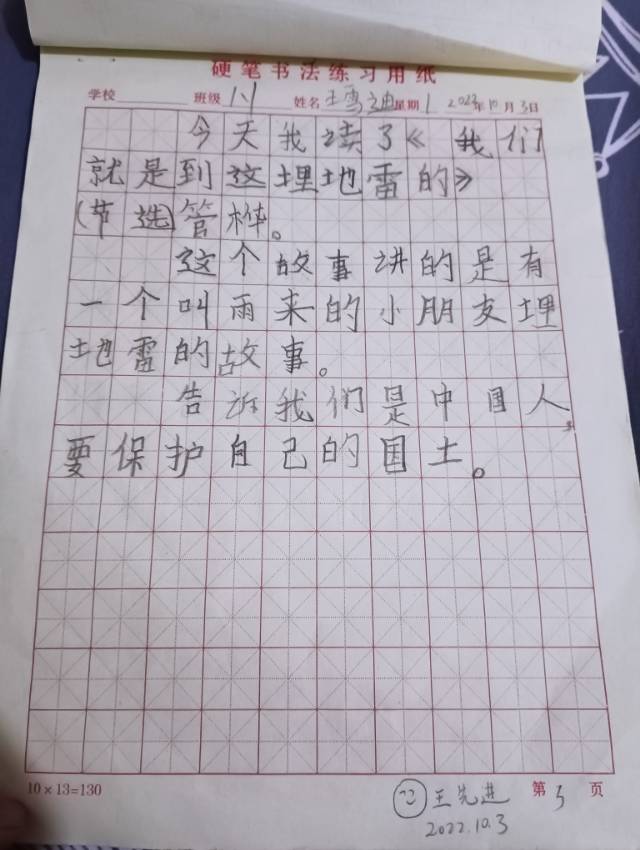 硬笔书法练习用纸
学校 班级 1.1 姓名 王雪迪 星期1 2022年10月3日
今天我读了《我们
就是到这埋地雷的》
(节选)管桦。
这个故事讲的是有
一个叫雨来的小朋友埋
地雷的故事。
告诉我们是中国人,
要保护自己的国土。
10×13=130
王先进 第5页
2022.10.3